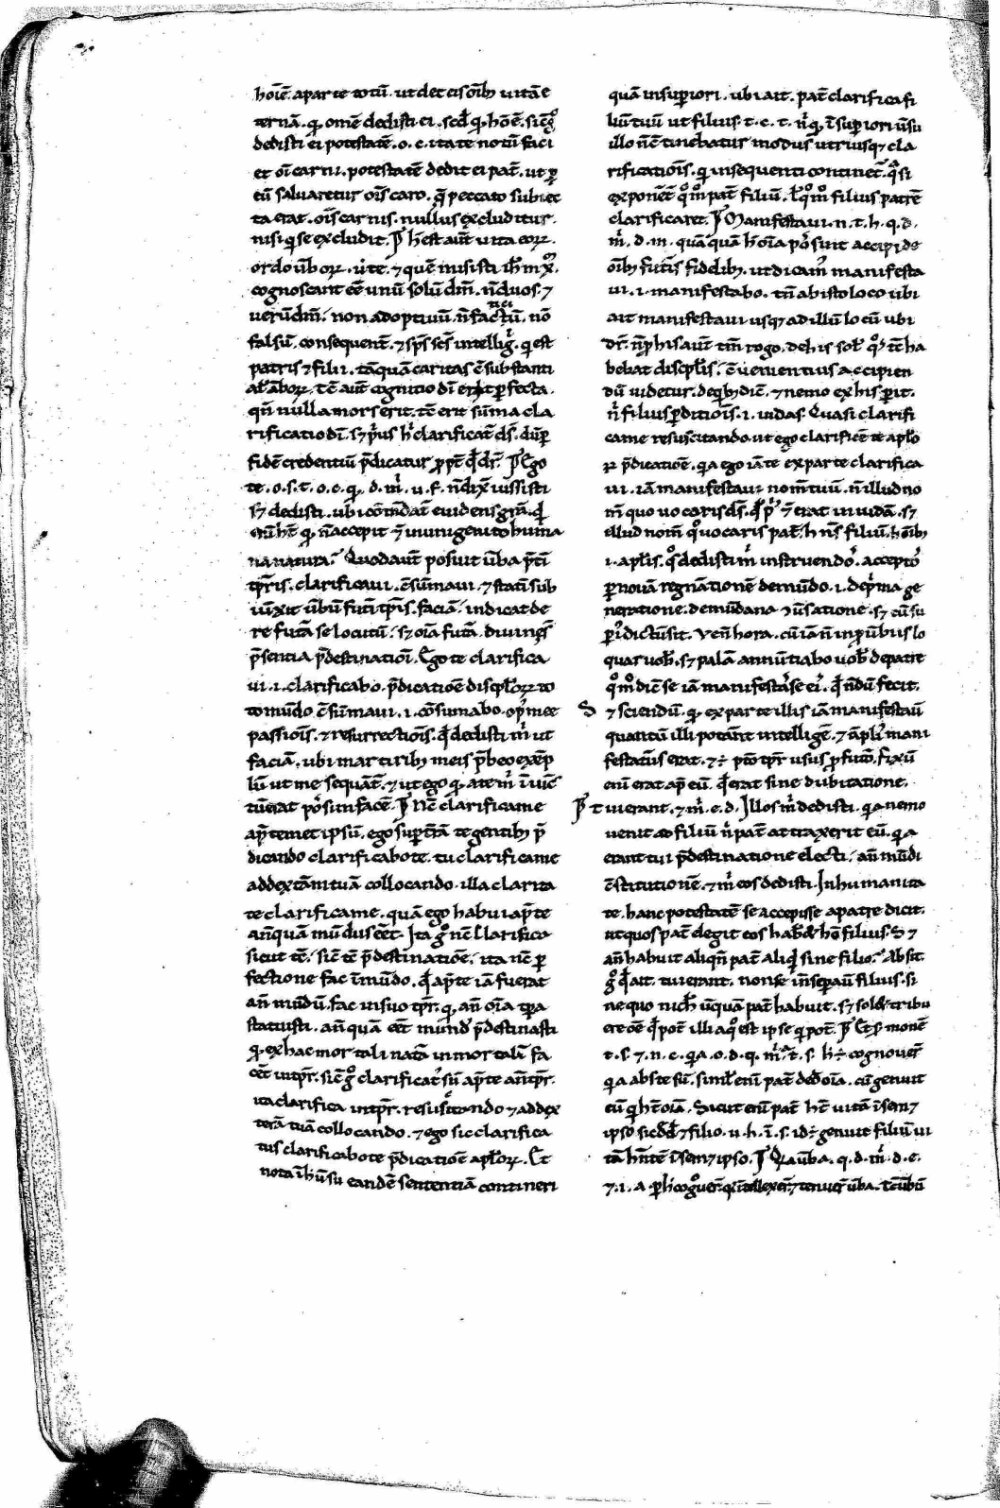 hoīē. aparte totū. ut det eis oīb; uitā e
ternā. q̨ omē dedisti ei. sed q̨ hōē. sic̄ g̊
dedisti ei potestatē. o. c. ita te notū faci
et oī carni. potestatē dedit ei pat̄. ut p̲
eū saluaretur oīs caro. q̄ peccato subiec
ta erat. oīs carnis. nullus excluditur.
nisi qui se excludit. h̄ est aūt uita eoꝝ.
ordo ūboꝝ. ut te. ⁊ quē misisti ih̄m xp̄m.
cognoscant eē unū solū dm̄. n̄ duos. ⁊
uerū dm̄. non adoptiuū. n̄ factū. nō
falsū. consequent̄. ⁊ sp̄s sc̄s intelliḡ. q̨ est
patris ⁊ filii. tāquā caritas ē substanti
al̄ amboꝝ. tc̄ aūt cognitio dī erit p̲fecta.
qn̄ nulla mors erit. tc̄ erit sūma cla
rificatio dī. s; p̄us h̄ clarificat̄ ds̄. dū p̲
fidē credentiū p̄dicatur. ꝓpt̄ q̄d dr̄. Ego
te. o. s. t. o. c. q̨. d. m̄. u. f. n̄ dix̄ iussisti
s; dedisti. ubi cōmdat̄ euidens grā. q̄
ēm h̄t q̨ n̄ accepit ī unigenito huma
na natura. Quod aūt posuit ūba p̄t̄i
tp̄ris. clarificaui. cōsūmaui. ⁊ statī sub
iūxit ūbū fut̄i tp̄is. faciā. indicat de
re futā se locutū. s; oīa futā. diuinę
p̄sentia p̄destinatiōī. Ego te clarifica
ui. i. clarificabo. p̄dicatiōē discipl̄oꝝ to
to mūdo. cōsūmaui. i. cōsumabo. op̄ meę
passiōīs. ⁊ resurrectiōīs. q̄d dedisti m̄ ut
faciā. ubi martirib; meis p̄beo exēp
lū ut me sequāt̄. ⁊ ut ego q̨ a te m̄ īiūc
tū erat pos̄sim facē. Nc̄ clarifica me
ap̄ temet ipsū. ego sup̲ t̄rā te gentib; p̄
dicando clarificabo te. tu clarifica me
ad dext̄am tuā collocando. illa clarita
te clarifica me. quā ego habui ap̄ te
an̄quā mūdus eēt. Ita g̊ nc̄ clarifica
sicut tc̄. sic̄ tc̄ p̄destinatiōē. ita nc̄ p̲
fectione fac ī mūdo. q̄d ap̄ te iā fuerat
an̄ mūdū. fac in suo tp̄r. q̨ an̄ oīa tp̄a
statuisti. an̄quā eēt mund̄ p̄destinasti
q̨ ex hac mortali natā in mortalī fa
cēt in tp̄r. sic̄ g̊ clarificat̄ sū ap̄ te an̄ tp̄r.
ita clarifica in tp̄r. resuscitando ⁊ ad dex
terā tuā collocando. ⁊ ego sic clarifica
tus clarificabo te p̄dicatiōē apl̄oꝝ. Et
nota ī h̄ ūsu eandē sententiā contineri
quā in sup̲iori. ubi ait. pat̄ clarifica fi
liū tuū ut filius. t. c. t. n̄ q̨ ī sup̲iori ūsu
illo n̄ cōtinebatur modus utriusq; cla
rificatiōīs. q̨ in sequenti continet̄. q̄si
exponēt q̊m̊ pat̄ filiū. l̄ q̊m̊ filius patrē
clarificaret. Manifestaui. n. t. h. q. d.
m̄. d. m. quāquā h̄ oīa poss̄int accipi de
oīb; fut̄is fidelib;. ut dicam̄ manifesta
ui. i. manifestabo. tn̄ ab isto loco ubi
ait manifestaui usq; ad illū locū ubi
dr̄. n̄ p̲ his aūt tm̄ rogo. de his sol̄ q̊s tc̄ ha
bebat discipl̄is. cōuenientius accipien
dū uidetur. de q̊b; diē. ⁊ nemo ex his p̲it.
n̄ filius p̲ditiōīs. i. iudas. Quasi clarifi
ca me resuscitando. ut ego clarificē te apl̄o
ꝝ p̄dicatiōē. q̨a ego iā te ex parte clarifica
ui. iā manifestaui nom̄ tuū. n̄ illud no
m̄ quo uocaris ds̄. q̄d p̄ ī erat in iudā. s;
illud nom̄ quo uocaris pat̄. h n̄ s̄ filiū. hoīb;
i. apl̄is. q̊s dedisti m̄ instruendo. accepto
p̲ nouā regn̄ationē de mūdo. i. de p̄ma ge
neratione. de mūdana ↄūsatione. s; cū su
p̲i dictū sit. Ven̄ hora. cū iā n̄ in p̲ūbiis lo
quar uob̄. s; palā annūtiabo uob̄ de patre
q̊m̊ diē se iā manifestasse ei. q̄d nōdū fecit.
S ⁊ sciendū. q̨ ex parte illis iā manifestau̅
quantū illi potān̄t intelligē. ⁊ āpli̅ mani
festatus̄ erat. ⁊ ÷ pt̄o tp̄r usus ꝓ futo. fixū
enī erat ap̄ eū. q̄d erat sine dubitatione.
T ui erant. ⁊ m̄. e. d. Illos m̄ dedisti. q̨a nemo
uenit ad filiū n̄ pat̄ attraxerit eū. q̨a
erant tui p̄destinatione electi. an̄ mūdi
cōstitutionē. ⁊ m̄ eos dedisti. In humanita
te. hanc potestatē se accepisse a patre dicit.
ut quos pat̄ elegit eos hab̄&. hō filius. S ⁊
an̄ habuit aliqn̄ pat̄ aliq̄d sine filio. Absit.
g̊ q̄d ait. tui erant. non sic īsep̲aū filius. si
ne quo nich̄ ūquā pat̄ habuit. s; sol& tribu
ere oē q̄d pot̄ illi a quo est ipse q̨ pot̄. Et s. monē
t. s. ⁊. n. c. q̨a. o. d. q. m̄. a t̄. s. h̄ ÷ cognouer̄
q̨a abs te sū. simil̄ enī pat̄ ded̄ oīa. cū genuit
eū q̨ h̄t oīa. Sicut enī pat̄ h̄t uitā ī sem;
ipso sic ded̄ ⁊ filio. u. h. ī. s. id ÷ genuit filiū ui
tā hn̄tē ī sem; ipso. Q̨a ūba. q. d. m̄. d. e.
⁊. i. a. p̲ h̄ cogouer̄. q̨a ītellexer̄. ⁊ tenuer̄ ūba. tc̄ ūbū